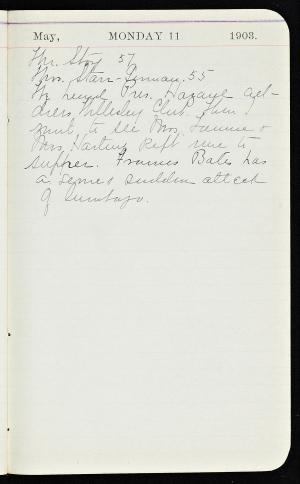 May, MONDAY 11 1903.
Mr. Story 57
Mrs. Starr-Truman. 55
We heard Pres. Hazard ad-
dress Wellesley Club. Then I
went to see Mrs. &
Mrs. Harting kept me to
supper. Frances Bates has
a severe & sudden attack
of lumbago.